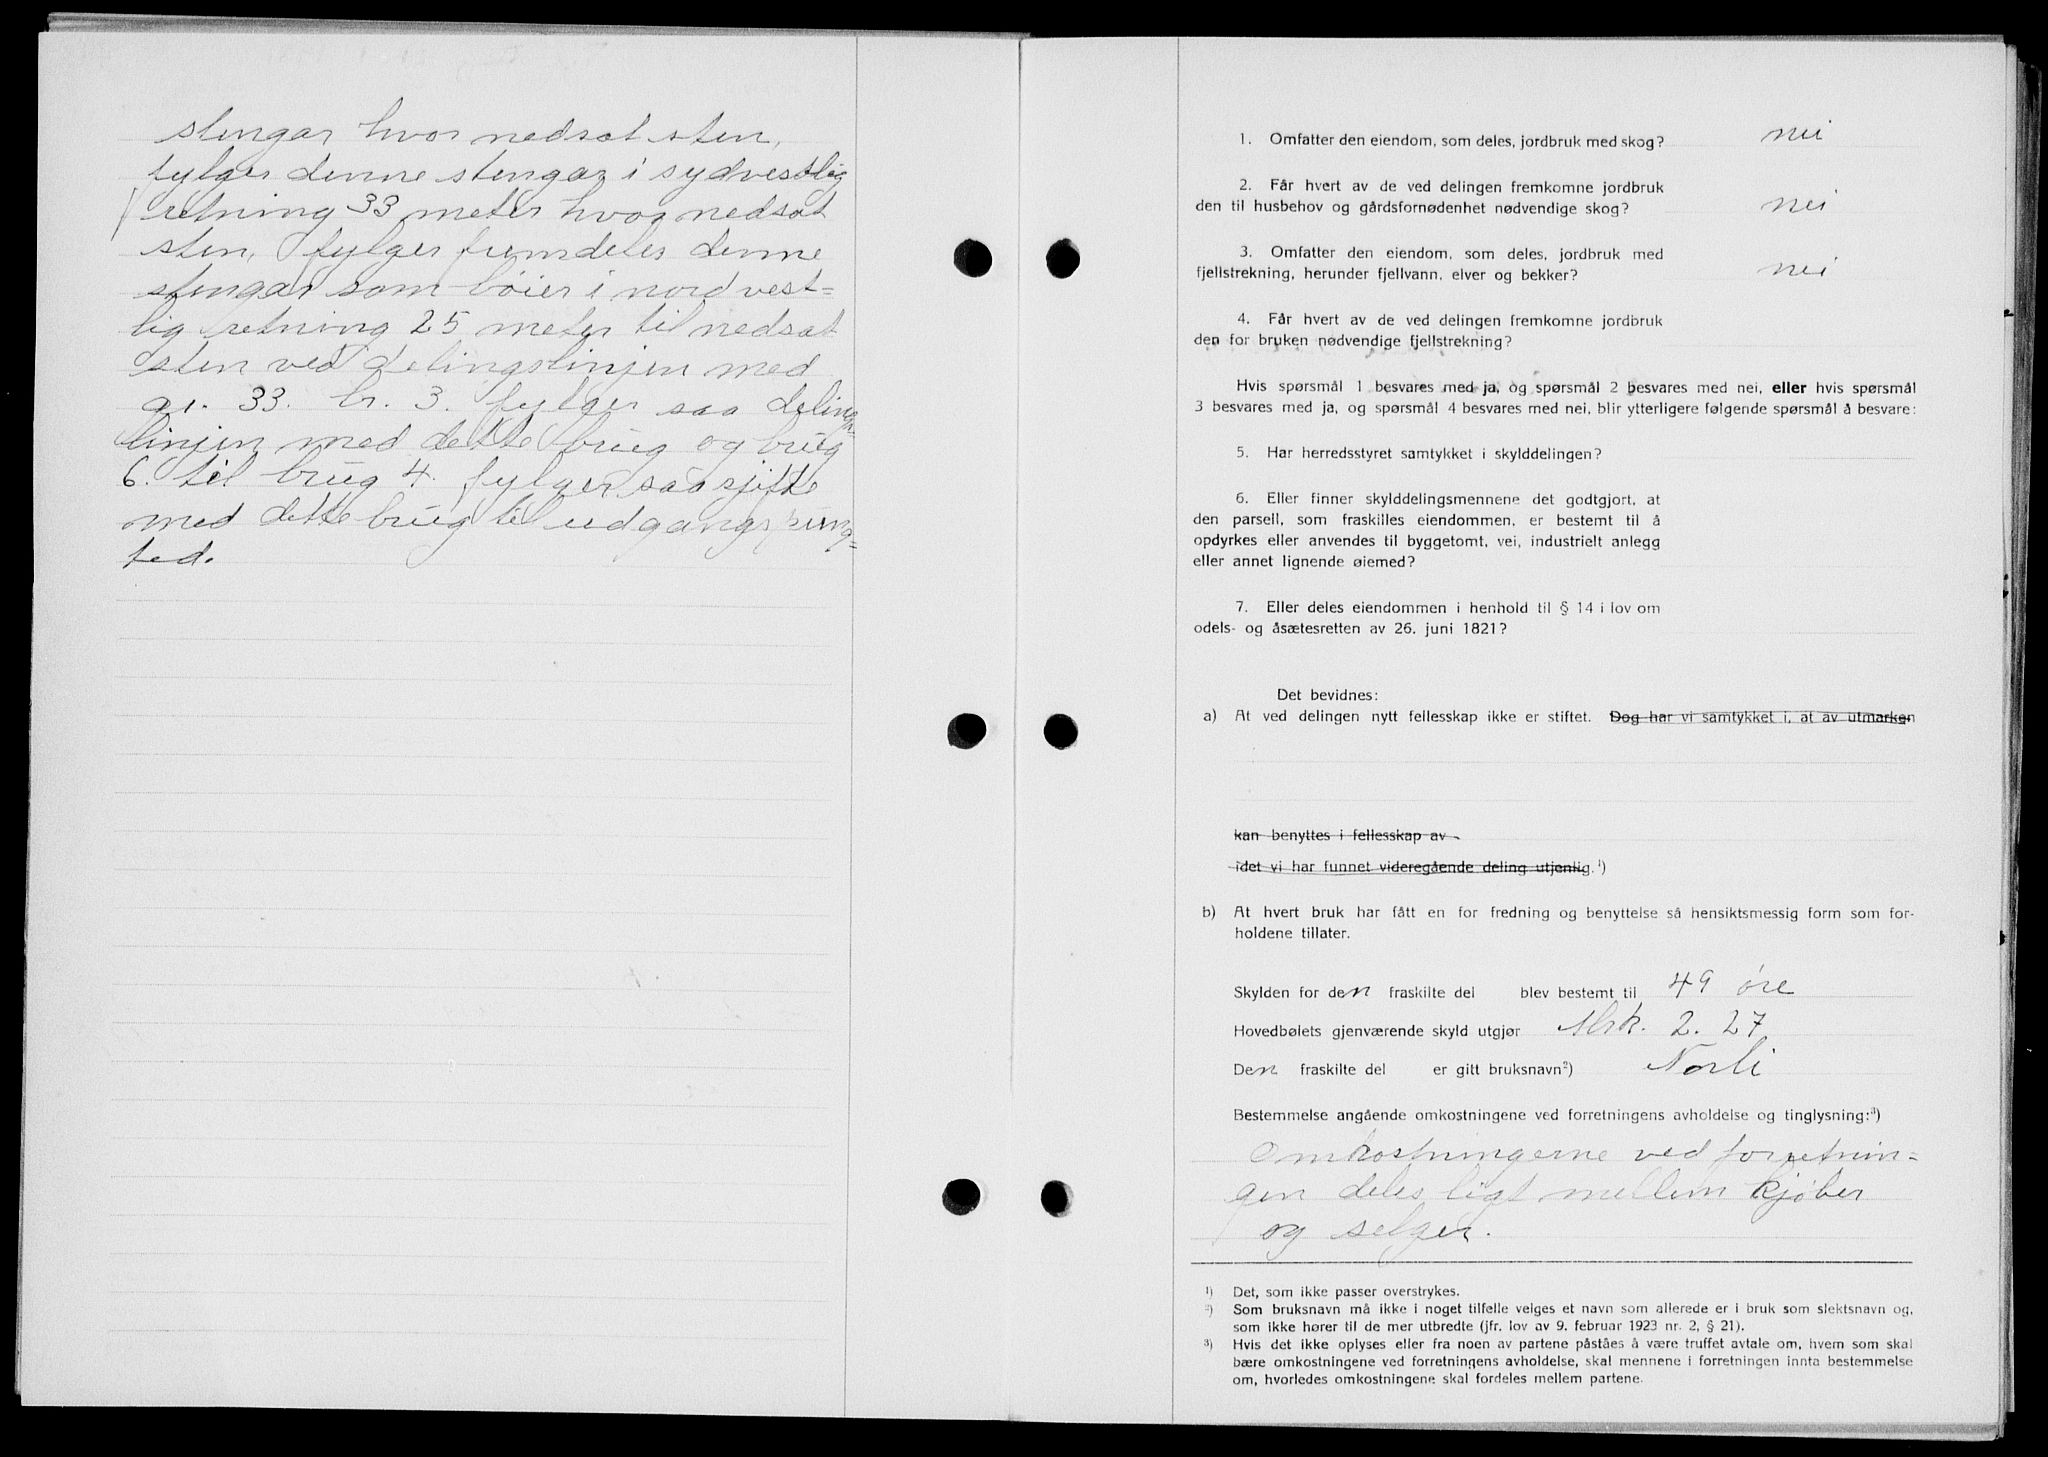 stengar hvor nedsat sten,
fylger denne stengar i sydvestlig
retning 33 meter hvor nedsat
sten, fylger fremdeles denne
stengar som bøier i nordvest=
lig retning 25 meter til nedsat
sten ved delingslinjen med
gr. 33. br. 3. fylger saa delings
linjen med dette brug og brug
6. til brug 4. fylger saa sjifte
med dette brug til udgangspung=
ted.
1. Omfatter den eiendom, som deles, jordbruk med skog? nei
2. Får hvert av de ved delingen fremkomne jordbruk
den til husbehov og gårdsfornødenhet nødvendige skog? nei
3. Omfatter den eiendom, som deles, jordbruk med
fjellstrekning, herunder fjellvann, elver og bekker? nei
4. Får hvert av de ved delingen fremkomne jordbruk
den for bruken nødvendige fjellstrekning?
Hvis spørsmål 1 besvares med ja, og spørsmål 2 besvares med nei, eller hvis spørsmål
3 besvares med ja, og spørsmål 4 besvares med nei, blir ytterligere følgende spørsmål å besvare:
5. Har herredsstyret samtykket i skylddelingen?
6. Eller finner skylddelingsmennene det godtgjort, at
den parsell, som fraskilles eiendommen, er bestemt til å
opdyrkes eller anvendes til byggetomt, vei, industrielt anlegg
eller annet lignende øiemed?
7. Eller deles eiendommen i henhold til § 14 i lov om
odels- og åsætesretten av 26. juni 1821?
Det bevidnes:
a) At ved delingen nytt fellesskap ikke er stiftet. Dog har vi samtykket i, at av utmarken
kan benyttes i fellesskap av
idet vi har funnet videregående deling utjenlig.¹)
b) At hvert bruk har fått en for fredning og benyttelse så hensiktsmessig form som for-
holdene tillater.
Skylden for den fraskilte del blev bestemt til 49 øre
Hovedbølets gjenværende skyld utgjør Mrk. 2. 27
Den fraskilte del er gitt bruksnavn²) Norli
Bestemmelse angående omkostningene ved forretningens avholdelse og tinglysning:³)
Omkostningerne ved forretnin=
gen deles ligt mellem kjøber
og selger.
¹) Det, som ikke passer overstrykes.
²) Som bruksnavn må ikke i noget tilfelle velges et navn som allerede er i bruk som slektsnavn og,
som ikke hører til de mer utbredte (jfr. lov av 9. februar 1923 nr. 2, § 21).
³) Hvis det ikke oplyses eller fra noen av partene påståes å være truffet avtale om, hvem som skal
bære omkostningene ved forretningens avholdelse, skal mennene i forretningen innta bestemmelse
om, hvorledes omkostningene skal fordeles mellem partene.